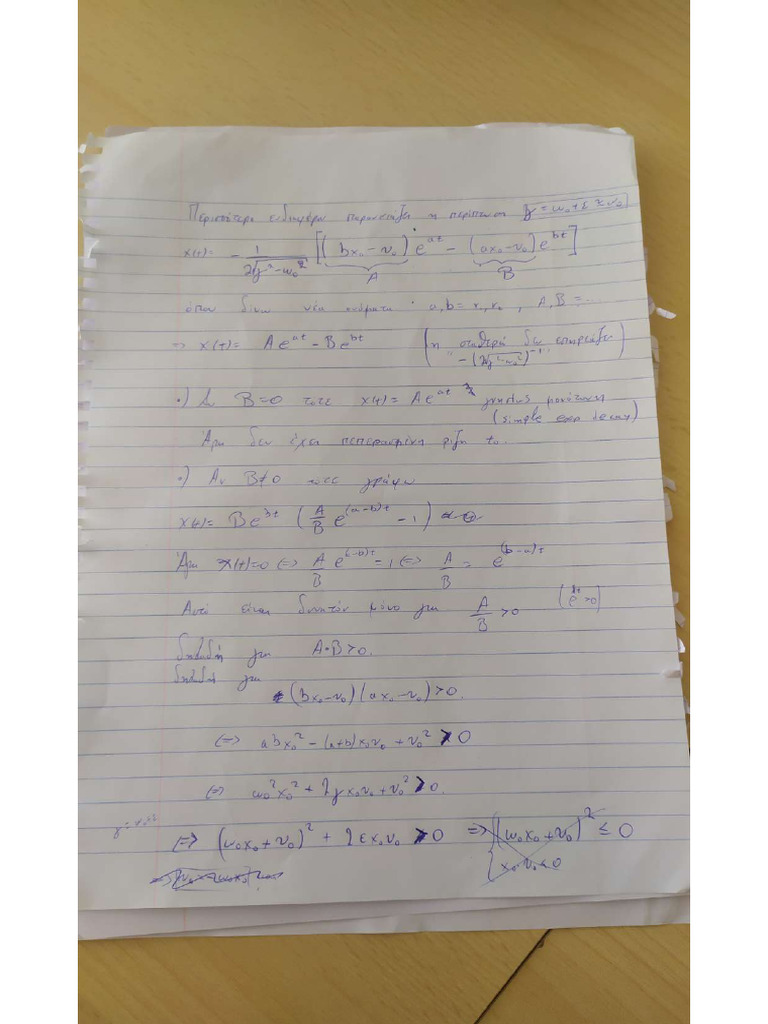 Περισσότερο ενδιαφέρον παρουσιάζει η περίπτωση γ = ω₀+ε > ω₀
x(t) = - 1/(2√(γ²-ω₀²)) [(bx₀ - v₀) e^{at} - (ax₀ - v₀) e^{bt}]
A B
όπου δίνω νέα ονόματα · a, b = , A, B = ...
⇒ x(t) = A e^{at} - B e^{bt} (η σταθερά δεν επηρεάζει
-(2√(γ²-ω₀²))^{-1})
•) Αν B=0 τότε x(t) = A e^{at} γνησίως μονότονη
(simple exp decay)
Άρα δεν έχει πεπερασμένη ρίζη t₀.
•) Αν B≠0 τότε γράφω
x(t) = B e^{bt} (A/B e^{(a-b)t} - 1)
Άρα x(t)=0 ⇔ A/B e^{(a-b)t} = 1 ⇔ A/B = e^{(b-a)t}
Αυτό είναι δυνατόν μόνο για A/B > 0
δηλαδή για A·B>0.
δηλαδή για
(bx₀-v₀)(ax₀-v₀)>0.
⇔ abx₀² - (a+b)x₀v₀ + v₀² > 0
⇔ ω₀²x₀² + 2γx₀v₀ + v₀² > 0.
⇔ (ω₀x₀+v₀)² + 2εx₀v₀ > 0 ⇒ { (ω₀x₀+v₀)² ≤ 0
x₀v₀<0